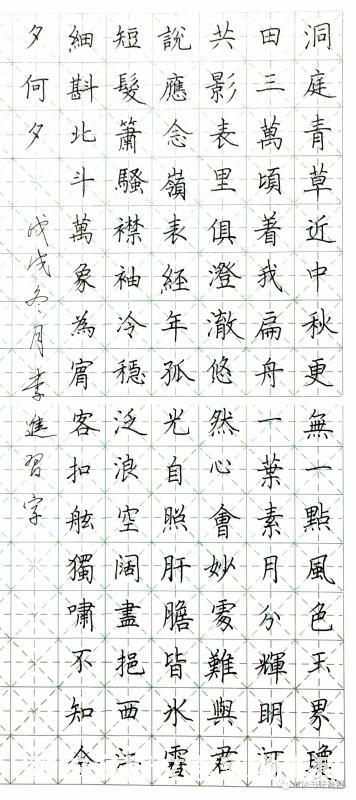 洞庭青草近中秋更無一點風色玉界瓊
田三萬頃着我扁舟一葉素月分輝明河
共影表里俱澄澈悠然心會妙處難與君
說應念嶺表經年孤光自照肝膽皆冰雪
短髮簫騷襟袖冷穩泛浪空闊盡挹西江
細斟北斗萬象為賓客扣舷獨嘯不知今
夕何夕
戊戌冬月李進習字